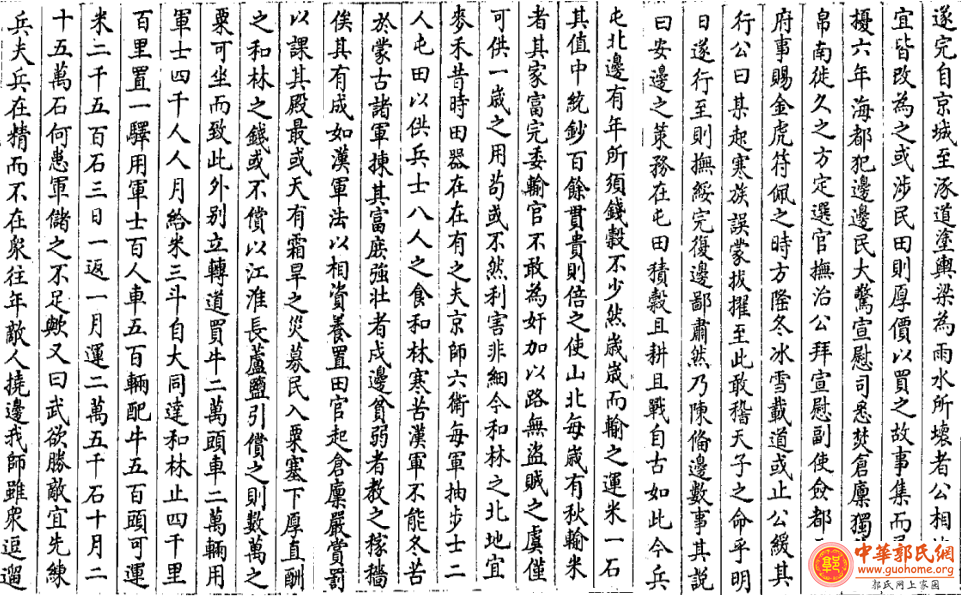 遂完自京城至涿道塗輿梁為雨水所壞者公相
宜皆改為之或涉民田則厚價以買之故事集而
擾六年海都犯邊邊民大驚宣慰司悉焚倉廩獨
帛南徙久之方定選官撫治公拜宣慰副使僉都
府事賜金虎符佩之時方隆冬冰雪載道或止公緩其
行公曰某起寒族誤蒙拔擢至此敢稽天子之命乎明
日遂行至則撫綏完復邊鄙肅然乃陳備邊數事其說
曰安邊之策務在屯田積穀且耕且戰自古如此今兵
屯北邊有年所須錢穀不少然歲歲而輸之運米一石
其值中統鈔百餘貫貴則倍之使山北每歲有秋輸米
者其家富完委輸官不敢為奸加以路無盜賊之虞僅
可供一歲之用苟或不然利害非細今和林之北地宜
麥禾昔時田器在在有之夫京師六衛每軍抽步士二
人屯田以供兵士八人之食和林寒苦漢軍不能冬苦
於蒙古諸軍揀其富庶強壯者戍邊貧弱者教之稼穡
俟其有成如漢軍法以相資養置田官起倉廩嚴賞罰
以課其殿最或天有霜旱之災募民入粟塞下厚直酬
之和林之錢或不償以江淮長蘆鹽引償之則數萬之
粟可坐而致此外別立轉道買牛二萬頭車二萬輛用
軍士四千人人月給米三斗自大同達和林止四千里
百里置一驛用軍士百人車五百輛配牛五百頭可運
米二千五百石三日一返一月運二萬五千石十月二
十五萬石何患軍儲之不足歟又曰武欲勝敵宜先練
兵夫兵在精而不在眾往年敵人撓邊我師雖眾逗遛
中華郭氏網
www.guohome.org
郭氏网上家园